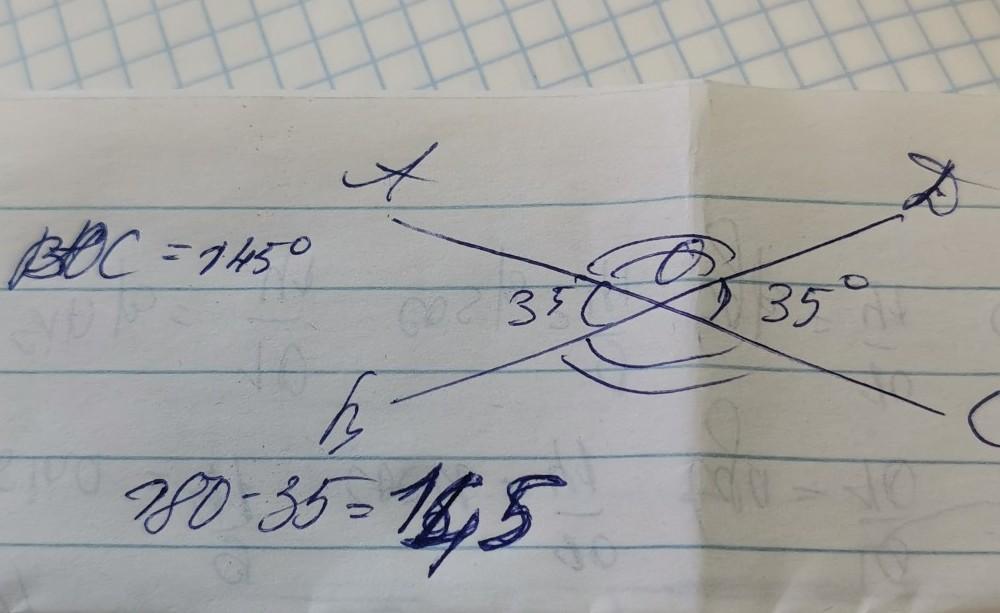 A D
BOC = 145°
O
35 35°
B C
180 - 35 = 145